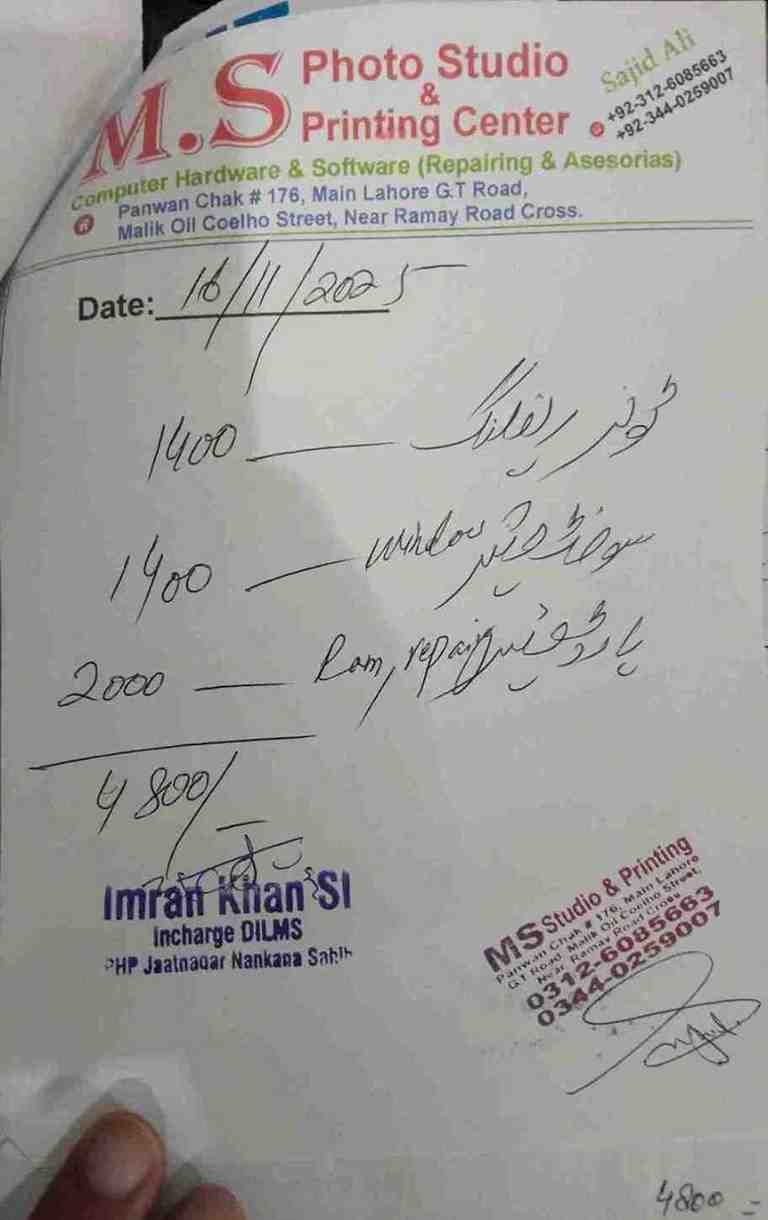 M.S Photo Studio
&
Printing Center
Sajid Ali
+92-312-6085663
+92-344-0259007
Computer Hardware & Software (Repairing & Asesorias)
Panwan Chak # 176, Main Lahore G.T Road,
Malik Oil Coelho Street, Near Ramay Road Cross.
Date: 16/11/2025
1400 — ٹونر ریفلنگ
1400 — window
2000 — Ram, repairing
4800/
Imran Khan SI
Incharge DILMS
PHP Jaatnagar Nankana Sahib
MS Studio & Printing
Panwan Chak # 176, Main Lahore
G.T Road, Malik Oil Coelho Street,
Near Ramay Road Cross
0312-6085663
0344-0259007
4800 =